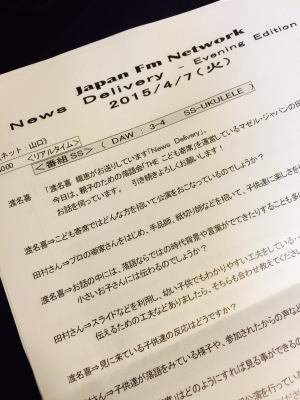 Japan Fm Network
News Delivery - Evening Edition
2015/4/7(火)
ネット：山口)
<リアルタイム>
<番組SS> ( DAW : 3-4 SS-UKULELE )
渡名喜 「渡名喜 織恵がお送りしています「News Delivery」。
今日は、親子のための落語会「THE こども寄席」を運営しているマゼル・ジャパンの田
お話を伺っています。 引き続きよろしくお願いします！
渡名喜⇒こども寄席ではどんな方を招いて公演をおこなっているのでしょうか？
田村さん⇒プロの噺家さんをはじめ、手品師、紙切り師などを招いて、子供達に楽しさを
渡名喜⇒お話の中には、落語ならではの時代背景や言葉がでてきたりすることも多
小さいお子さんには伝わるのでしょうか？
田村さん⇒スライドなどを利用し、幼い子供でもわかりやすい工夫をしている
伝えるための工夫などありましたら、そちらも合わせ教えてください
渡名喜⇒見に来ている子供達の反応はどうですか？
田村さん⇒子供達が落語をみている様子や、参加されたからの声など
はどのようにすれば見る事ができるの
公演を行っている